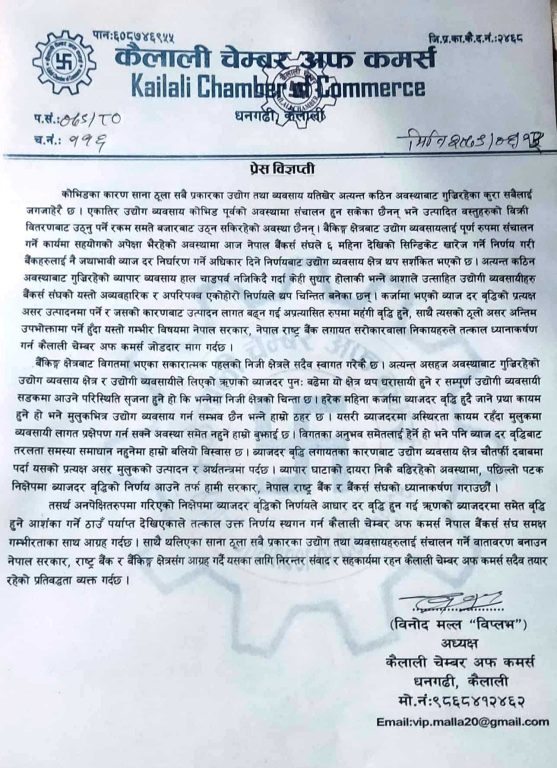 पानः६०८७४६९५५
जि.प्र.का.कै.द.नं.:२४६८
कैलाली चेम्बर अफ कमर्स
Kailali Chamber of Commerce
धनगढी, कैलाली
प.सं.:०७८/८०
च.नं.: ११६
प्रेस विज्ञप्ती
कोभिडका कारण साना ठूला सबै प्रकारका उद्योग तथा व्यवसाय यतिखेर अत्यन्त कठिन अवस्थाबाट गुज्रिरहेका कुरा सबैलाई
जगजाहेरै छ । एकातिर उद्योग व्यवसाय कोभिड पूर्वको अवस्थामा संचालन हुन सकेका छैनन् भने उत्पादित वस्तुहरुको विक्री
वितरणबाट उठ्नु पर्ने रकम समते बजारबाट उठ्न सकिरहेको अवस्था छैनन् । बैकिङ्ग क्षेत्रबाट उद्योग व्यवसायलाई पूर्ण रुपमा संचालन
गर्ने कार्यमा सहयोगको अपेक्षा भैरहेको अवस्थामा आज नेपाल बैंकर्स संघले ६ महिना देखिको सिन्डिकेट खारेज गर्ने निर्णय गरी
बैंकहरुलाई नै जथाभावी ब्याज दर निर्धारण गर्ने अधिकार दिने निर्णयबाट उद्योग व्यवसाय क्षेत्र थप सशंकित भएको छ । अत्यन्त कठिन
अवस्थाबाट गुज्रिरहेको व्यापार व्यवसाय हाल चाडपर्व नजिकिदै गर्दा केही सुधार होलाकी भन्ने आशाले उत्साहित उद्योगी व्यवसायीहरु
बैंकर्स संघको यस्तो अव्यवहारिक र अपरिपक्व एकोहोरो निर्णयले थप चिन्तित बनेका छन् । कर्जामा भएको ब्याज दर बृद्धिको प्रत्यक्ष
असर उत्पादनमा पर्ने र जसको कारणबाट उत्पादन लागत बढ्न गई अप्रत्यासित रुपमा महंगी बृद्धि हुने, साथै त्यसको ठूलो असर अन्तिम
उपभोक्तामा पर्ने हुँदा यस्तो गम्भीर विषयमा नेपाल सरकार, नेपाल राष्ट्र बैंक लगायत सरोकारवाला निकायहरुले तत्काल ध्यानाकर्षण
गर्न कैलाली चेम्बर अफ कमर्स जोडदार माग गर्दछ ।
बैंकिङ्ग क्षेत्रबाट विगतमा भएका सकारात्मक पहलको निजी क्षेत्रले सदैव स्वागत गरेकै छ । अत्यन्त असहज अवस्थाबाट गुज्रिरहेको
उद्योग व्यवसाय क्षेत्र र उद्योगी व्यवसायीले लिएको ऋणको ब्याजदर पुनः बढेमा यो क्षेत्र थप धरासायी हुने र सम्पूर्ण उद्योगी व्यवसायी
सडकमा आउने परिस्थिति सृजना हुने हो कि भन्नेमा निजी क्षेत्रको चिन्ता छ । हरेक महिना कर्जामा ब्याजदर बृद्धि हुदै जाने प्रथा कायम
हुने हो भने मुलुकभित्र उद्योग व्यवसाय गर्न सम्भव छैन भन्ने हाम्रो ठहर छ । यसरी ब्याजदरमा अस्थिरता कायम रहँदा मुलुकमा
व्यवसायी लागत प्रक्षेपण गर्न सक्ने अवस्था समेत नहुने हाम्रो बुझाई छ । विगतका अनुभव समेतलाई हेर्ने हो भने पनि ब्याज दर बृद्धिबाट
तरलता समस्या समाधान नहुनेमा हाम्रो बलियो विस्वास छ । ब्याजदर बृद्धि लगायतका कारणबाट उद्योग व्यवसाय क्षेत्र चौतर्फी दबाबमा
पर्दा यसको प्रत्यक्ष असर मुलुकको उत्पादन र अर्थतन्त्रमा पर्दछ । व्यापार घाटाको दायरा निकै बढिरहेको अवस्थामा, पछिल्लो पटक
निक्षेपमा ब्याजदर बृद्धिको निर्णय आउने तर्फ हामी सरकार, नेपाल राष्ट्र बैंक र बैंकर्स संघको ध्यानाकर्षण गराउछौं ।
तसर्थ अनपेक्षितरुपमा गरिएको निक्षेपमा ब्याजदर बृद्धिको निर्णयले आधार दर बृद्धि हुन गई ऋणको ब्याजदरमा समेत बृद्धि
हुने आशंका गर्ने ठाउँ पर्याप्त देखिएकाले तत्काल उक्त निर्णय स्थगन गर्न कैलाली चेम्बर अफ कमर्स नेपाल बैंकर्स संघ समक्ष
गम्भीरताका साथ आग्रह गर्दछ । साथै थलिएका साना ठूला सबै प्रकारका उद्योग तथा व्यवसायहरुलाई संचालन गर्ने वातावरण बनाउन
नेपाल सरकार, राष्ट्र बैंक र बैंकिङ्ग क्षेत्रसंग आग्रह गर्दै यसका लागि निरन्तर संवाद र सहकार्यमा रहन कैलाली चेम्बर अफ कमर्स सदैव तयार
रहेको प्रतिबद्धता व्यक्त गर्दछ ।
(विनोद मल्ल "विप्लभ")
अध्यक्ष
कैलाली चेम्बर अफ कमर्स
धनगढी, कैलाली
मो.नं:९८६८४१२४६२
Email:vip.malla20@gmail.com